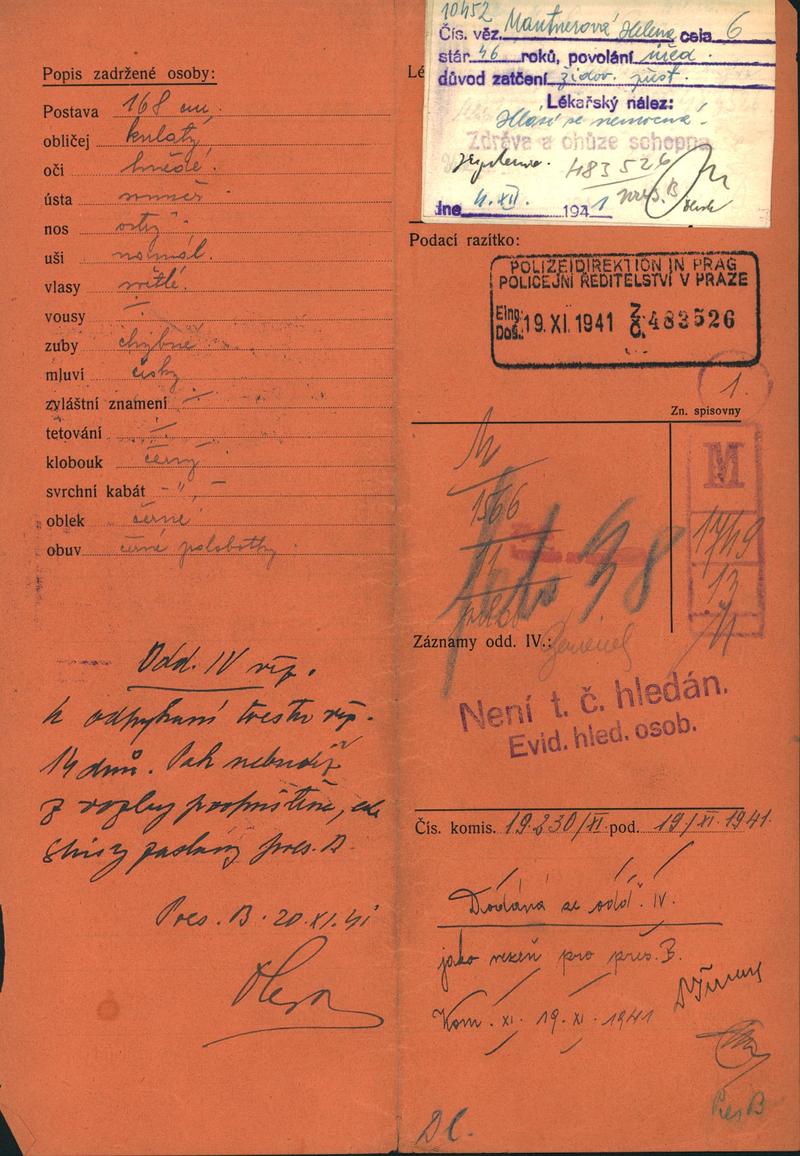 Popis zadržené osoby:
Postava 168 cm
obličej kulatý
oči hnědé
ústa
nos ostrý
uši normál.
vlasy světlé
vousy —
zuby chybné
mluví česky
zvláštní znamení —
tetování —
klobouk černý
svrchní kabát -"-
oblek černé
obuv černé polobotky
Odd. IV
k odpykání trestu
14 dnů. Pak nebudiž
z vazby propuštěna,
spisy pres. B
Pres. B. 20.XI.41
Lé
10452
Čís. věz. Mautnerová Helena cela 6
stár 46 roků, povolání úřed.
důvod zatčení židov. přest.
Lékařský nález:
Hlásí se nemocná!
Zdráva a chůze schopna
483526
pres. B
dne 4. XII. 1941
Podací razítko:
POLIZEIDIREKTION IN PRAG
POLICEJNÍ ŘEDITELSTVÍ V PRAZE
Eing.
Doš. 19. XI. 1941 Z. Č. 483526
1.
Zn. spisovny
M
1566
11
38
M
1749
13
11
Záznamy odd. IV.:
Není t. č. hledán.
Evid. hled. osob.
Čís. komis. 19.230/XI pod. 19/XI. 1941.
Dodána se odd. IV.
jako vězeň pro pres. B.
Kom. XI. 19. XI. 1941
Pres B